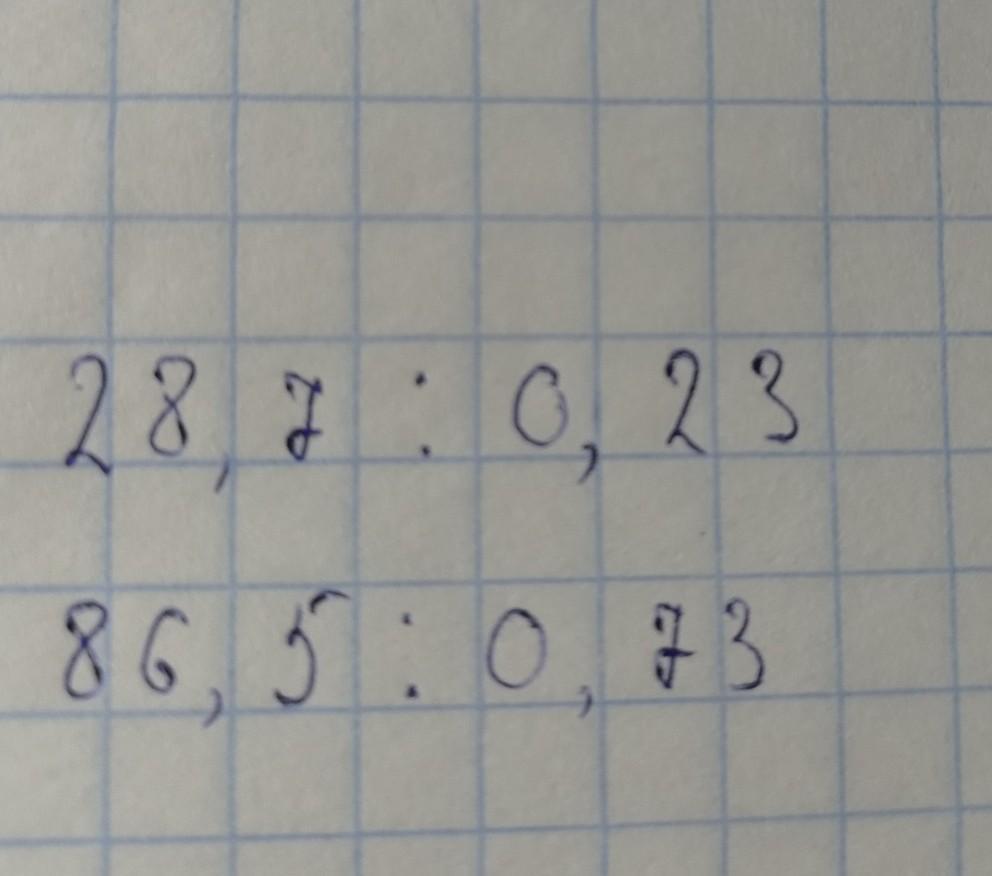 28,7 : 0,23
86,5 : 0,73